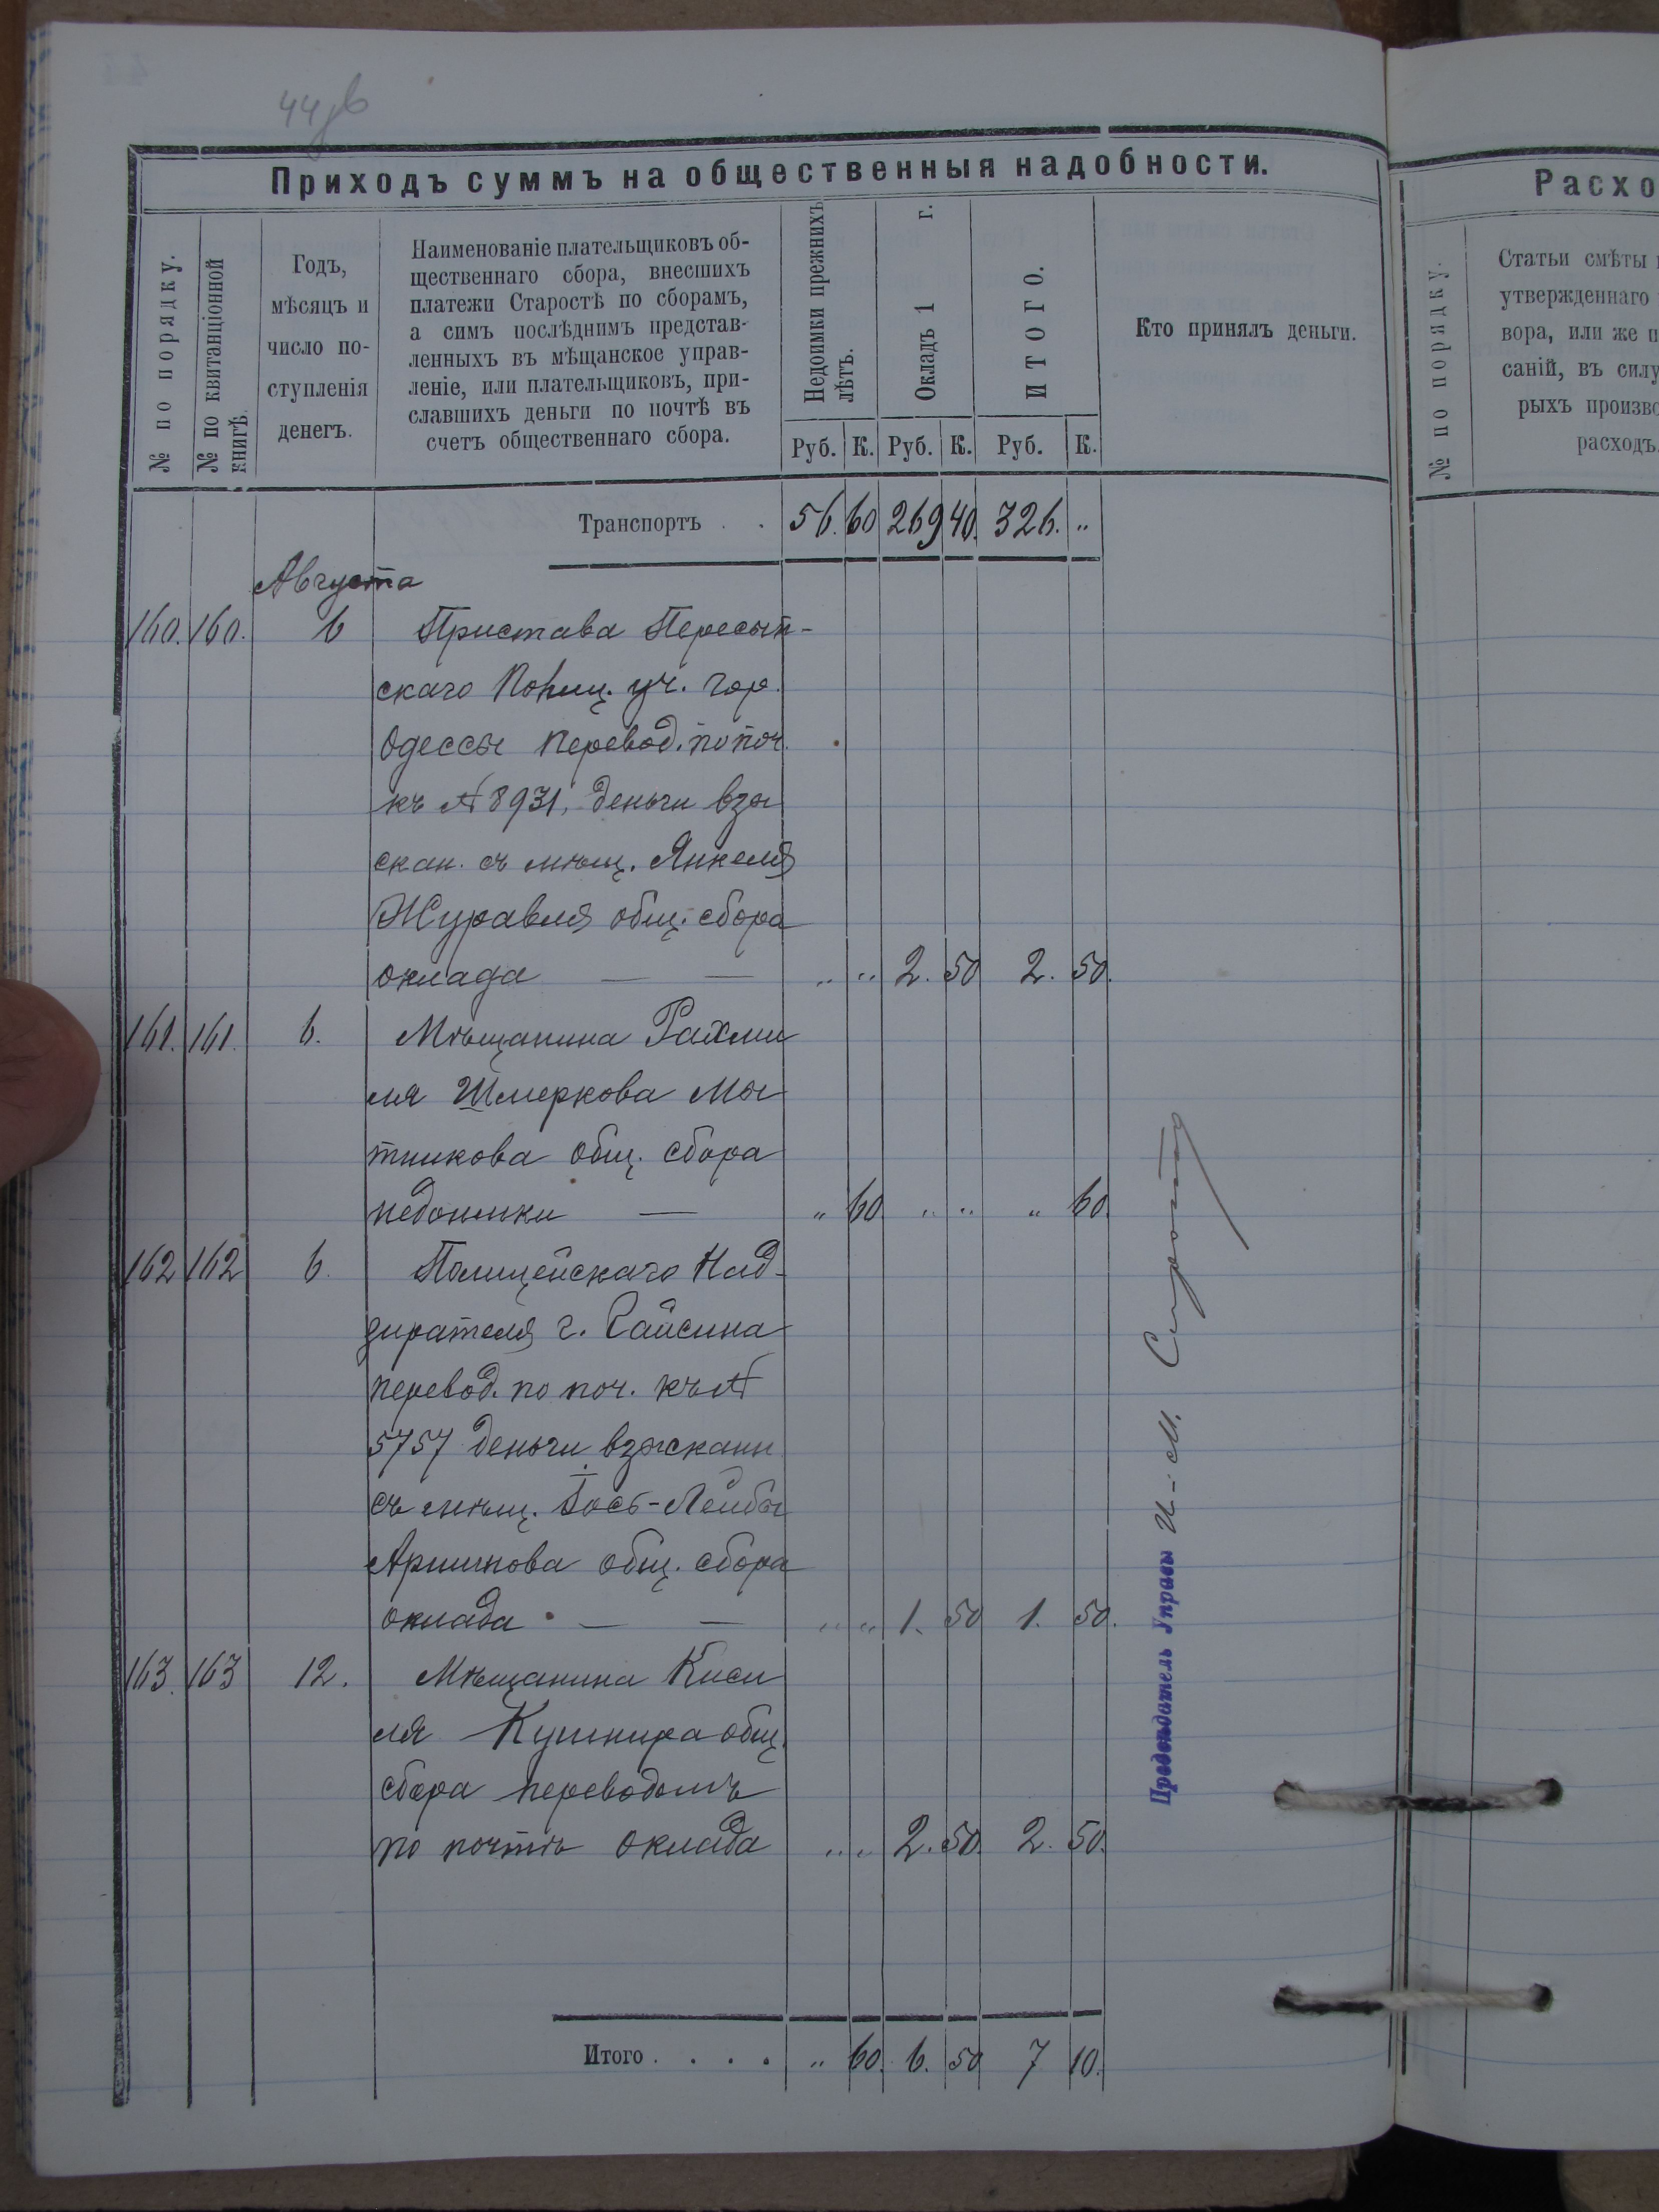 44 об
Приходъ суммъ на общественныя надобности.
№ по порядку.
№ по квитанціонной
книгѣ.
Годъ,
мѣсяцъ и
число по-
ступленія
денегъ.
Наименованіе плательщиковъ об-
щественнаго сбора, внесшихъ
платежи Старостѣ по сборамъ,
а симъ послѣднимъ представ-
ленныхъ въ мѣщанское управ-
леніе, или плательщиковъ, при-
славшихъ деньги по почтѣ въ
счетъ общественнаго сбора.
Недоимки прежнихъ
лѣтъ.
Окладъ 1 г.
ИТОГО.
Кто принялъ деньги.
Руб. К. Руб. К. Руб. К.
Транспортъ . . 56. 60 269 40. 326. "
Августа
160. 160. 6 Пристава Пересып-
скаго Полиц. уч. гор.
Одессы перевод. по поч.
къ № 8931, деньги взы
скан. съ мѣщ. Янкеля
Журавля общ. сбора
оклада — — " " 2. 50 2. 50.
161. 161. 6. Мѣщанина Рахми
ля Шмеркова Мы
тникова общ. сбора
недоимки — " 60. " " " 60.
162 162 6. Полицейскаго Над-
зирателя г. Гайсина
перевод. по поч. къ №
5757 деньги взыскани
съ мѣщ. Іось-Лейбы
Аришкова общ. сбора
оклада — — " " 1. 50 1. 50.
163. 163 12. Мѣщанина Киси
ля Кушнира общ.
сбора переводомъ
по почтѣ оклада " " 2. 50. 2. 50.
Итого . . . . " 60. 6. 50 7 10.
Предсѣдатель Управы И-М.
Расхо
№ по порядку.
Статьи смѣты
утвержденнаго
вора, или же п
саній, въ силу
рыхъ произво
расходъ.